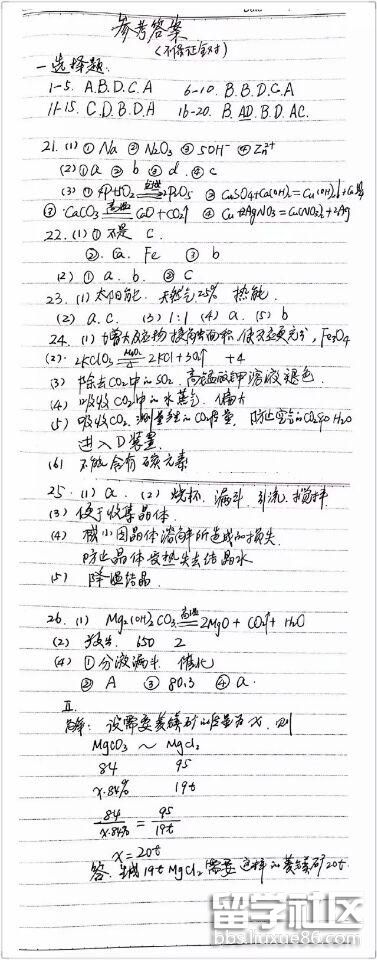 参考答案
(不保证全对)
一.选择题.
1-5. A.B.D.C.A 6-10. B.B.D.C.A
11-15. C.D.B.D.A 16-20. B.AD.B.D.AC.
21.(1)① Na ② N2O3 ③ 5OH⁻ ④ Zn²⁺
(2)① a ② b ③ d ④ c
(3)① 4P+5O2 点燃 2P2O5 ② CuSO4+Ca(OH)2=Cu(OH)2↓+
③ CaCO3 高温 CaO+CO2↑ ④ Cu+2AgNO3=Cu(NO3)2+2Ag
22.(1)① 不是 C.
② Ca. Fe ③ b
(2)① a. b. ② C
23.(1)太阳能. 天然气 25% 热能.
(2) a.c. (3) 1:1 (4) a. (5) b
24.(1)增大反应物接触面积,使反应更充分, Fe3O4
(2)·2KClO3 MnO2 △ 2KCl+3O2↑ +4
(3) 除去CO2中的SO2. 高锰酸钾溶液褪色.
(4) 吸收CO2中的水蒸气. 偏大
(5) 吸收CO2, 测量生成的CO2质量. 防止空气的CO2和H2O
进入D装置.
(6) 不能含有碳元素
25.(1) a. (2) 烧杯. 漏斗. 引流. 搅拌
(3) 便于收集晶体
(4) 减小因晶体溶解所造成的损失.
防止晶体受热失去结晶水
(5) 降温结晶.
26.(1) Mg2(OH)2CO3 高温 2MgO+CO2↑+H2O
(2) 650 2
(4) ① 分液漏斗. 催化
② A ③ 80.3 ④ a.
II.
解: 设需要菱镁矿的质量为x. 则
MgCO3 ~ MgCl2
84 95
x·84% 19t
84/x·84% = 95/19t
x=20t
答: 生成19t MgCl2需要这样的菱镁矿20t.
留学社区
bbs.liuxue86.com